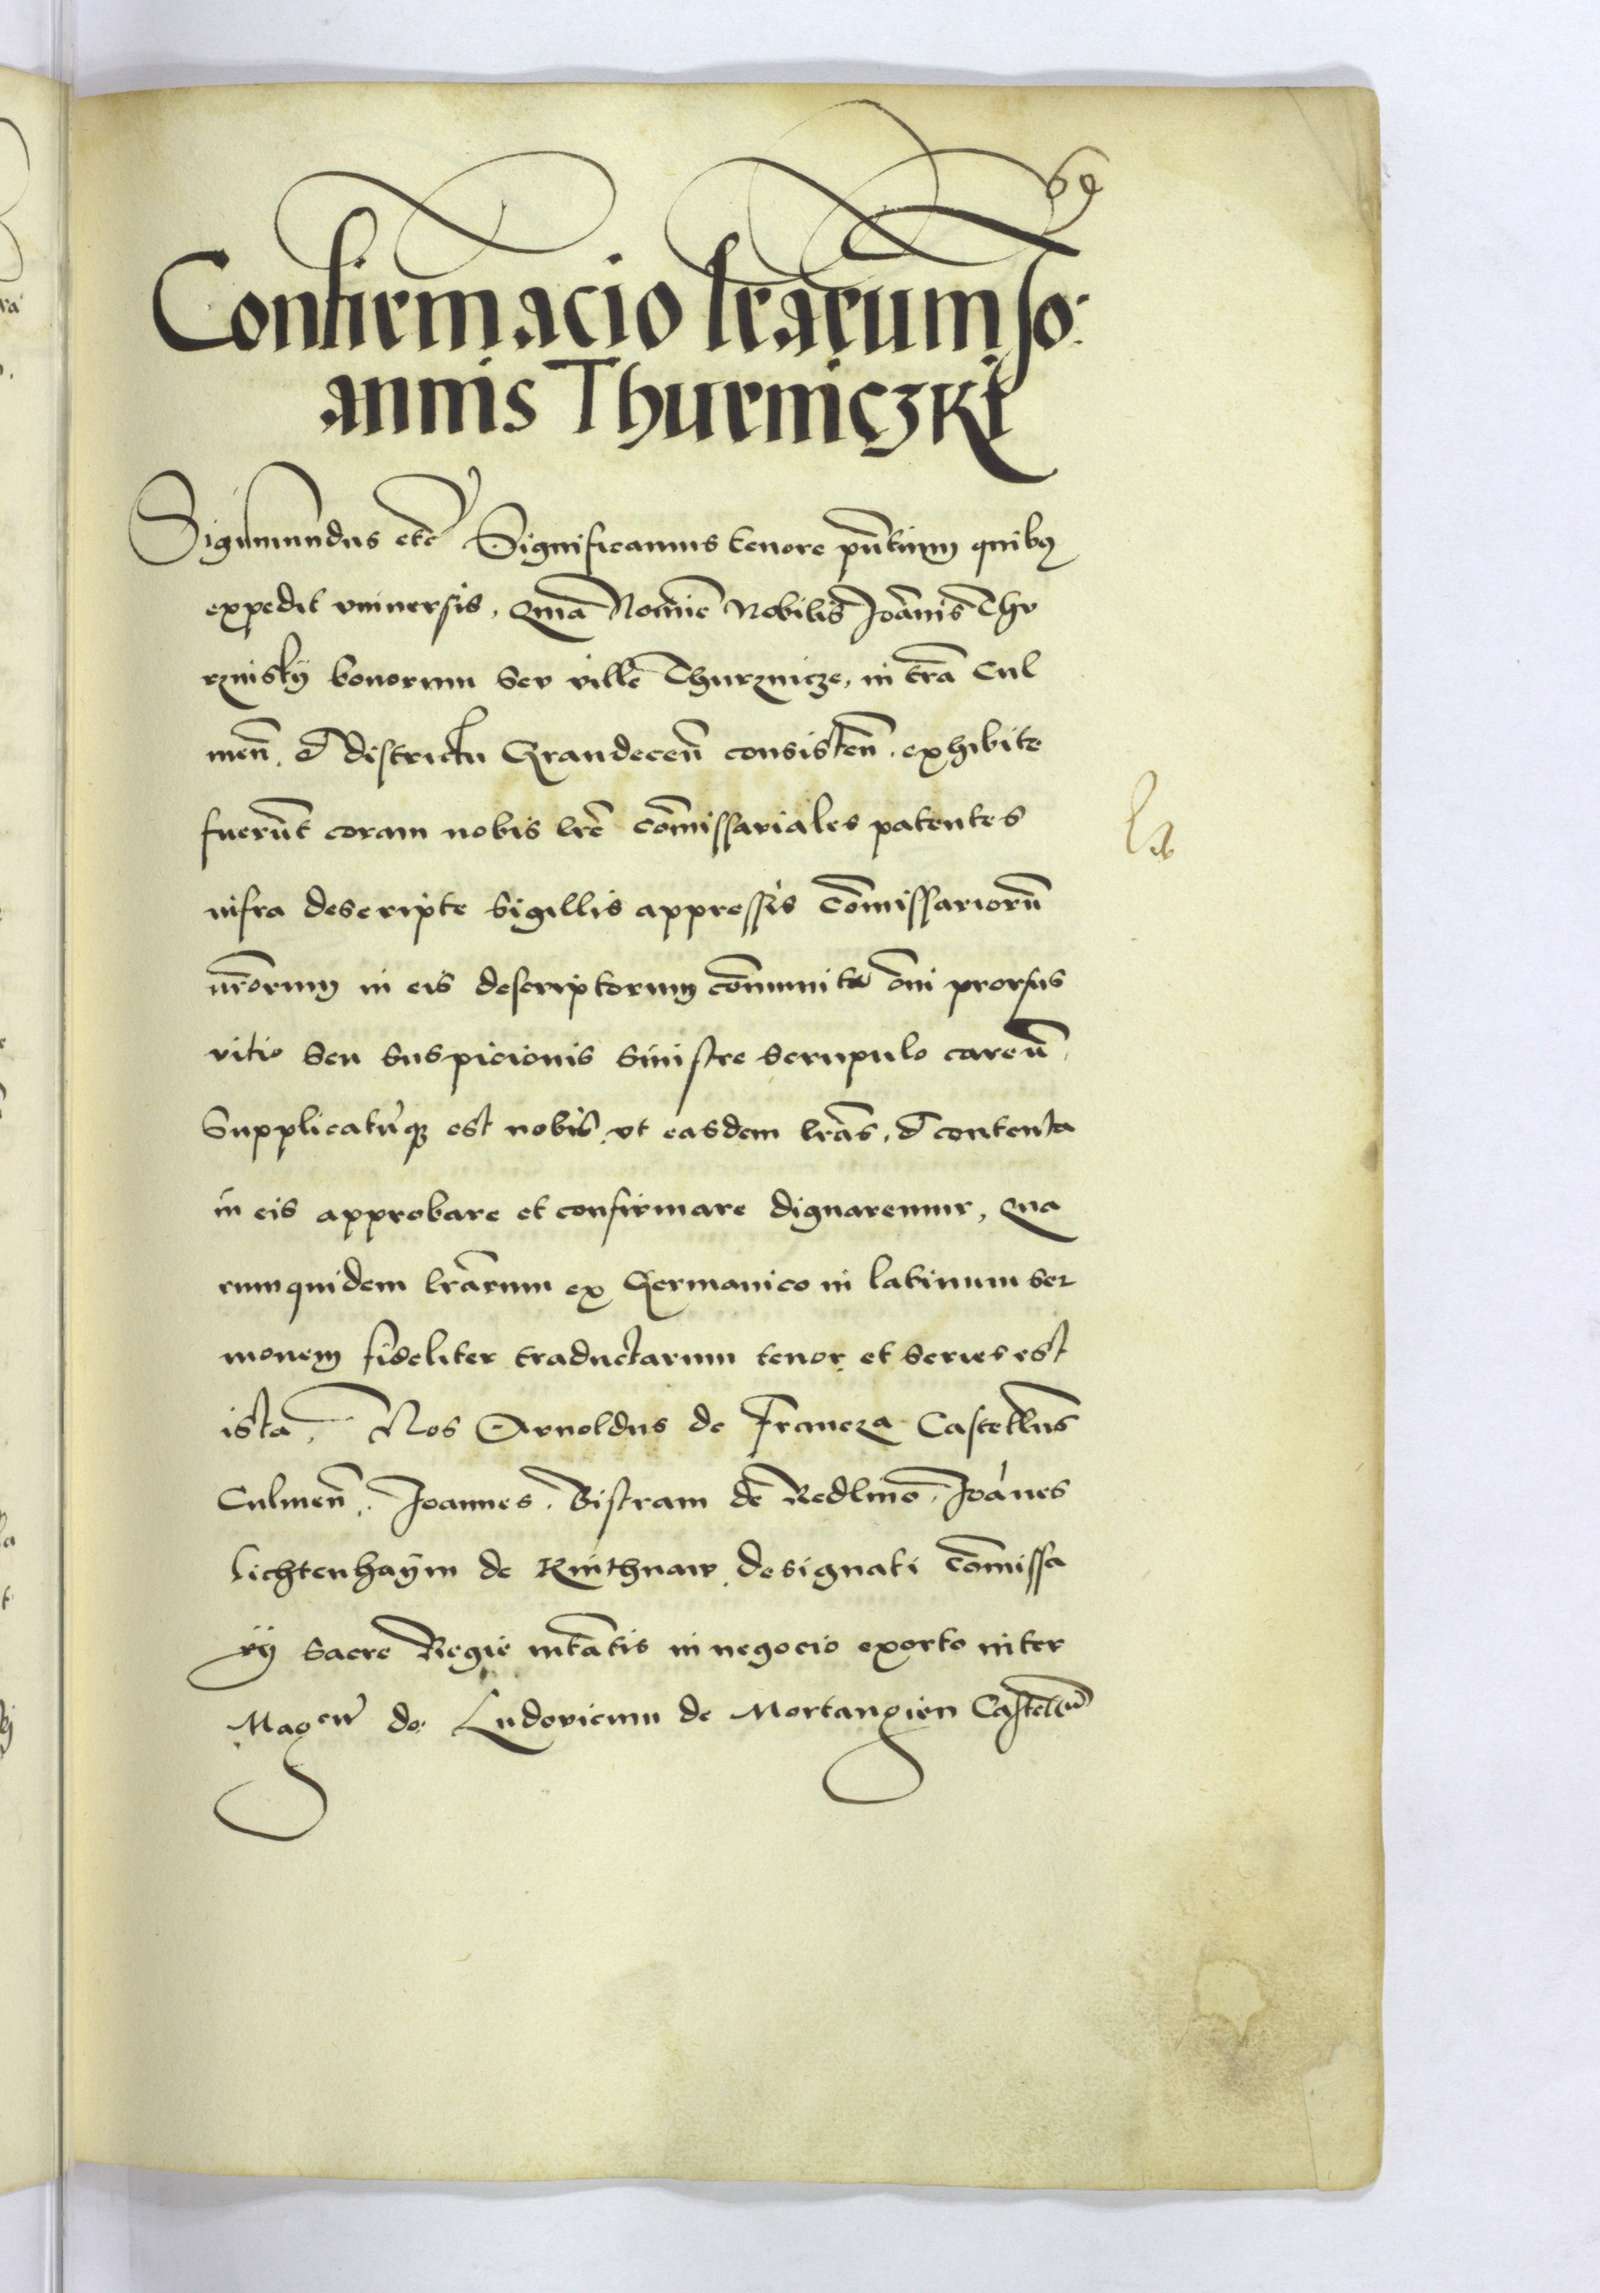 69
Confirmacio lrarum Jo:
annis Thurniczki
Sigismundus etc̃ Significamus tenore pñtium quibus
expedit vniuersis, Qm̃ Nomie Nobilis Joãnis Thu
rznisky bonorum seu ville Thurznicze, in tr̃a Cul
meñ. et districtu Graudeceñ consisteñ. exhibite
fuerũt coram nobis lr̃e cõmissariales patentes
infra descripte sigillis appressis Cõmissariorũ
nr̃orum in eis descriptorum cõmunite om̃i prorsus
vitio seu suspicionis sinistre scrupulo careñ.
Supplicatũque est nobis, vt easdem lr̃as, et contenta
in eis approbare et confirmare dignaremur, Qua
rumquidem lr̃arum ex Germanico in latinum ser
monem fideliter traductarum tenor et series est
ista, Nos Arnoldus de Francza Castellñus
Culmeñ. Joannes Bistram de Redlino. Joãnes
Lichtenhaÿm de Rinthnaw designati Cõmissa
rÿ Sacre Regie mt̃atis in negocio exorto inter
Mag͡cũ do. Ludovicum de Mortangien Castellñ